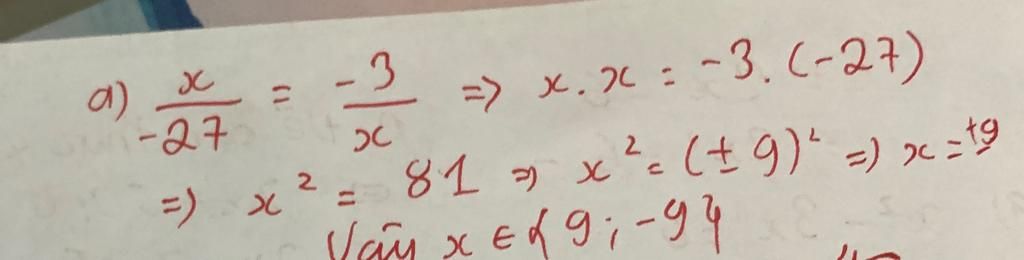 a) x/-27 = -3/x => x.x = -3.(-27)
=> x² = 81 => x² = (±9)² => x = ±9
Vậy x ∈ {9; -9}